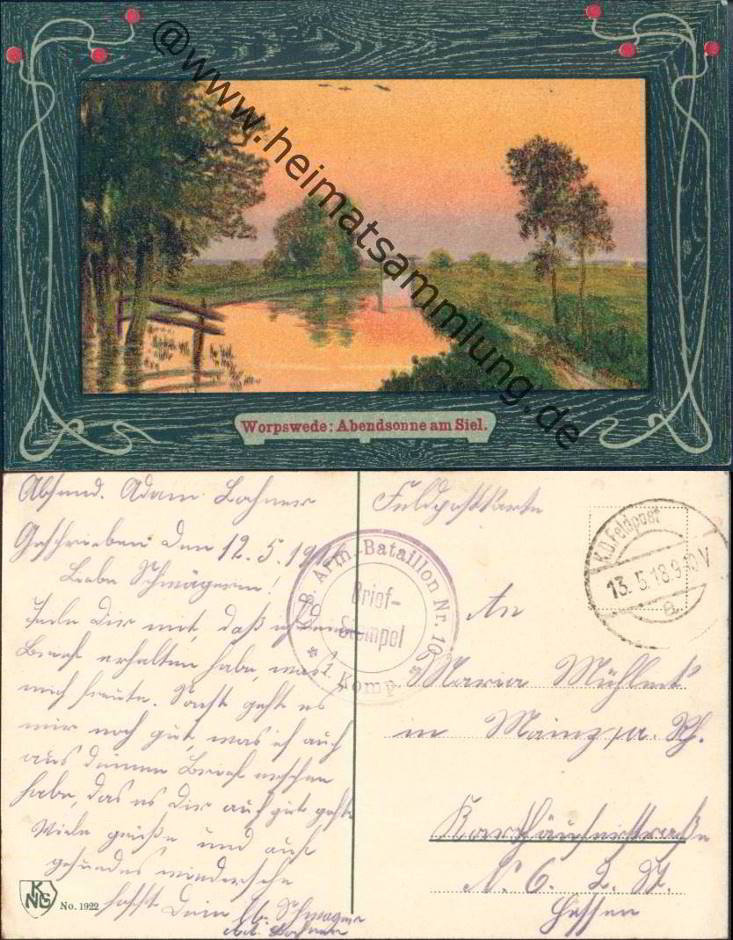 @www.heimatsammlung.de
Worpswede: Abendsonne am Siel.
Absend. Adam Lohner
Geschrieben den 12.5.191
Liebe Schwägerin!
Teile Dir mit, daß ich deinen
Brief erhalten habe, was
mich freute. Sonst geht es
mir noch gut, was ich auch
aus deinem Brief ersehen
habe, das es Dir auch gut geht
Viele grüße und auf
gesundes wiedersehn
hofft Dein Schwager
Ad. Lohner
KNG
No. 1922
Feldpostkarte
K. B. Arm.-Bataillon Nr.
Brief-
Stempel
* 1. Komp.
K.D. Feldpost
13.5.18.9-10V
An
Maria
in Mainz a. Rh.
Karthäuserstraße
N. 6. 2. St.
Hessen